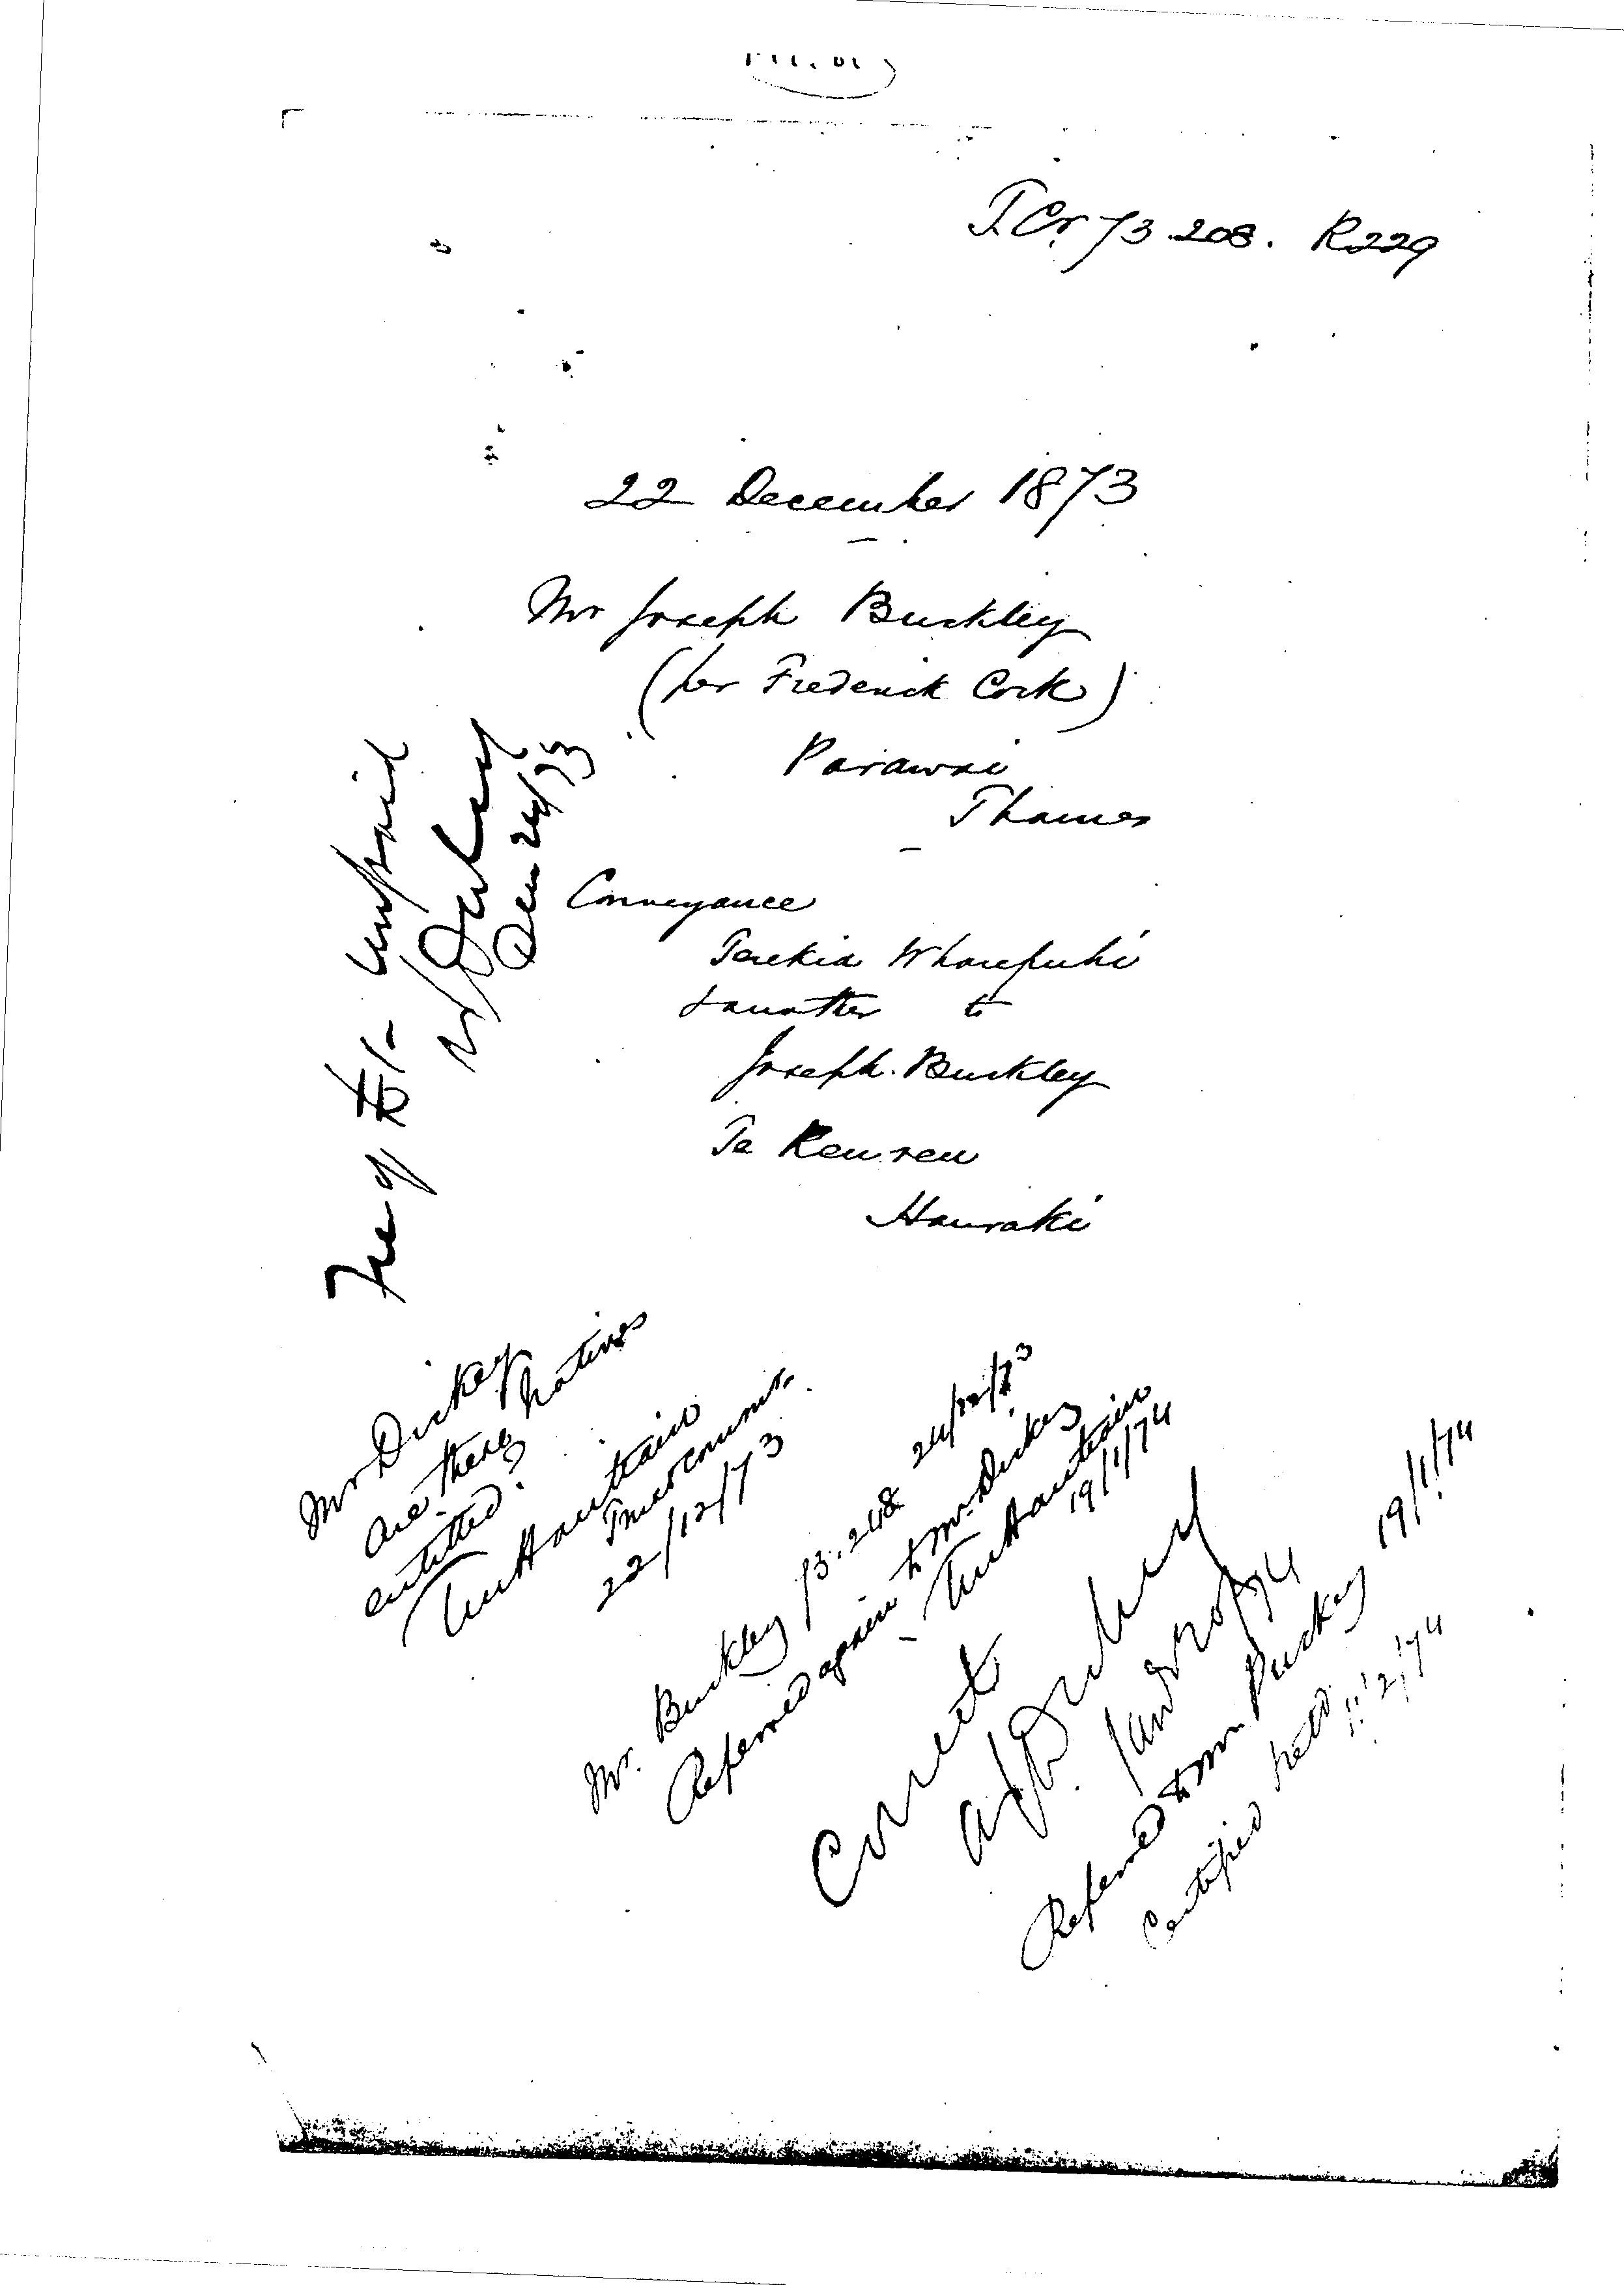 T.Cr. 73.208. R229
22 December 1873
Mr Joseph Buckley
(per Frederick Cock)
Parawai
Thames
Conveyance
Wharepuhi
& another to
Joseph Buckley
Te Reu reu
Hauraki
Fee of unpaid
Dec 24/73
Mr Dickey
are these natives
entitled?
22/12/73
Mr. Buckley 73.248 24/12/73
Referred again to Mr Dickey
19/1/74
Correct
Jany 20/74
Referred to Mr Puckey 19/1/74
Certified 11/2/74